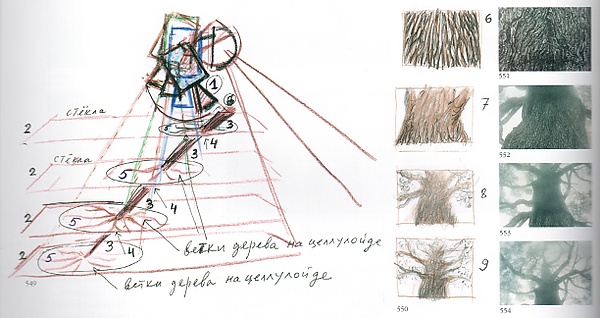 6
551
1
7
2 стёкла
6
3
552
4
2 стёкла
3
5
8
2
3 4
5
ветки дерева на целлулойде
553
2
3 4
5
9
ветки дерева на целлулойде
549
550
554